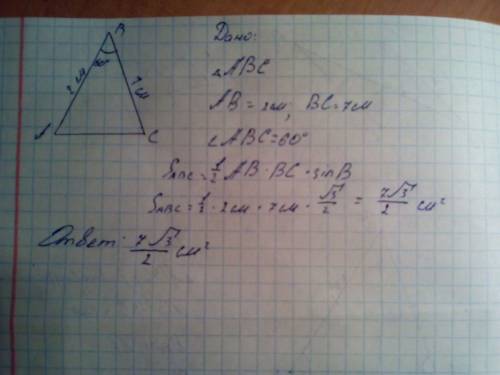 B
60°
2 см
7 см
A
C
Дано:
△ABC
AB = 2см, BC = 7см
∠ABC = 60°
S_ABC = 1/2 AB · BC · sin B
S_ABC = 1/2 · 2см · 7см · √3/2 = 7√3/2 см²
Ответ: 7√3/2 см²